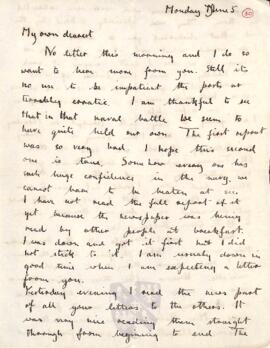 Monday June 5
My own dearest
No letter this morning and I do so
want to hear more from you. Still it's
no use to be impatient the posts are
terribly erratic. I am thankful to see
that in that naval battle we seem to
have quite held our own. The first report
was so very bad. I hope this second
one is true. Somehow every one has
such huge confidence in the navy we
cannot bear to be beaten at sea
I have not read the full report of it
yet because the newspaper was being
read by other people at breakfast.
I was down and got it first but I did
not stick to it. I am usually down in
good time when I am expecting a letter
from you.
Yesterday evening I read the news part
of all your letters to the others. It
was very nice reading them straight
through from beginning to end. The